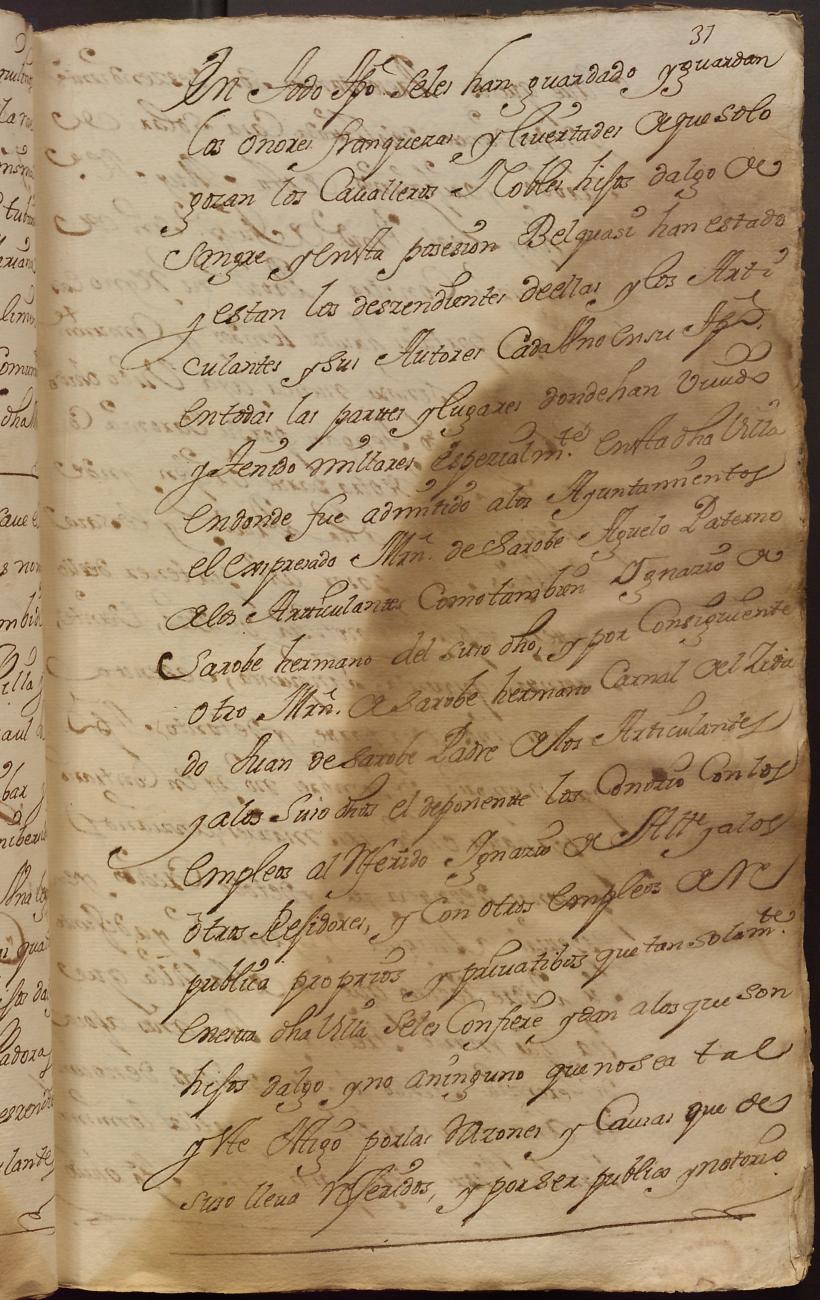 31
En todo tpõ. seles han guardado yguardan
los onores franquezas y livertades de que solo
gozan los Cavalleros Nobles hijos dalgo de
sangre yensta posesion Velquasi han estado
y estan los deszendientes deellas ylos Arti
culantes ysus Autores Cada Vno en su tpõ.
entodas las partes ylugares dondehan vivido
y tenido millares espezialm.te ensta dha Villa
endonde fue admitido alos Ayuntamientos
el expresado Mrñ. de Sarobe Aguelo Paterno
de los Articulantes Como tambien Ygnazio de
Sarobe hermano del suso dho, y por Consiguiente
otro Mrñ. de Sarobe hermano Carnal del
do Juan de Sarobe Padre de los Articulantes
y alos suso dhos el deponente los Conozio Con los
empleos al Referido Ignazio de Alte yalos
otros Rejidores, y Con otros empleos de Re
publica proprios y privatibos que tan solam.te
enesta dha Villa seles Confiere ydan alos que son
hijos dalgo yno aninguno que no sea tal
yste testigo por las Razones y Causas que de
suso lleva Referidos, y por ser publico ynotorio